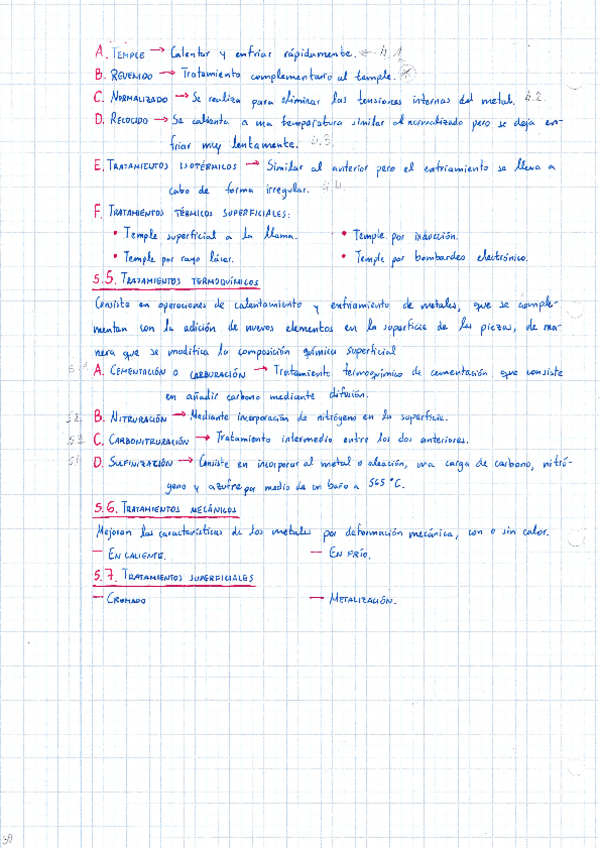 A. TEMPLE → Calentar y enfriar rápidamente. ← 4.1
B. REVENIDO → Tratamiento complementario al temple.
C. NORMALIZADO → Se realiza para eliminar las tensiones internas del metal. 4.2.
D. RECOCIDO → Se calienta a una temperatura similar al normalizado pero se deja en-
friar muy lentamente. 4.3.
E. TRATAMIENTOS ISOTÉRMICOS → Similar al anterior pero el enfriamiento se lleva a
cabo de forma irregular. 4.4.
F. TRATAMIENTOS TÉRMICOS SUPERFICIALES:
• Temple superficial a la llama. • Temple por inducción.
• Temple por rayo láser. • Temple por bombardeo electrónico.
5.5. TRATAMIENTOS TERMOQUÍMICOS
Consiste en operaciones de calentamiento y enfriamiento de metales, que se comple-
mentan con la adición de nuevos elementos en la superficie de las piezas, de ma-
nera que se modifica la composición química superficial
A. CEMENTACIÓN O CARBURACIÓN → Tratamiento termoquímico de cementación que consiste
en añadir carbono mediante difusión.
5.2. B. NITRURACIÓN → Mediante incorporación de nitrógeno en la superficie.
5.3. C. CARBONITRURACIÓN → Tratamiento intermedio entre los dos anteriores.
D. SULFINIZACIÓN → Consiste en incorporar al metal o aleación, una carga de carbono, nitró-
geno y azufre por medio de un baño a 565 °C.
5.6. TRATAMIENTOS MECÁNICOS
Mejoran las características de los metales por deformación mecánica, con o sin calor.
— EN CALIENTE. — EN FRÍO.
5.7. TRATAMIENTOS SUPERFICIALES
— CROMADO — METALIZACIÓN.